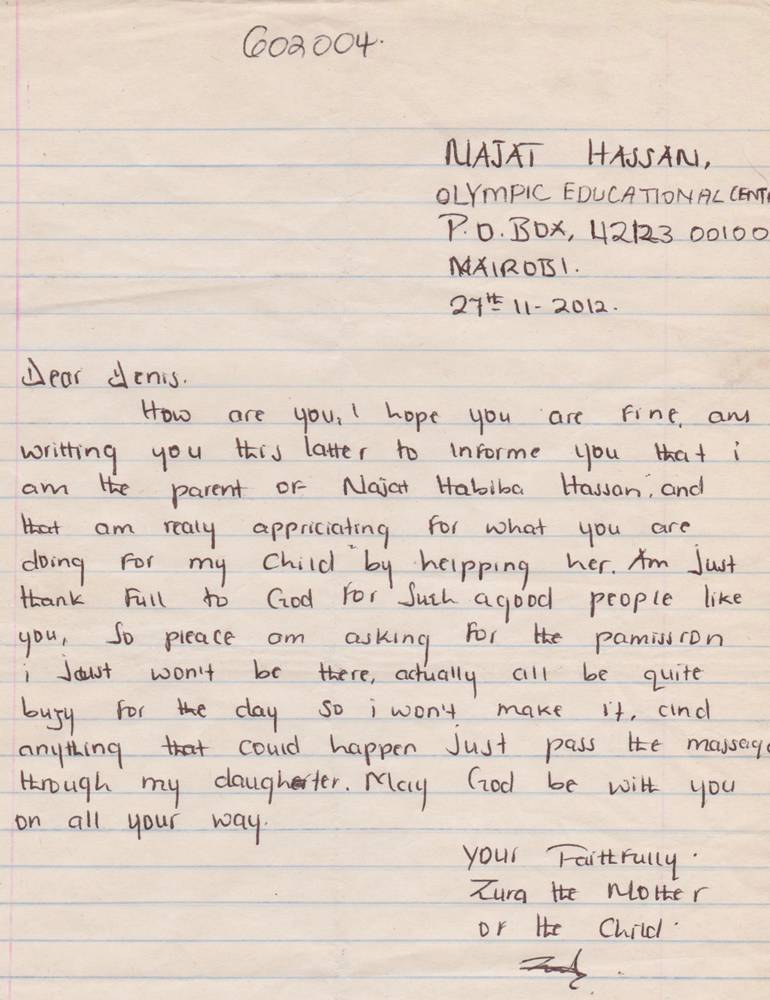 602004.
NAJAT HASSAN,
OLYMPIC EDUCATIONAL CENT
P.O.BOX, 42123 00100
NAIROBI.
27th 11-2012.
Dear Denis.
How are you, I hope you are fine, am
writting you this latter to informe you that i
am the parent of Najat Habiba Hassan, and
that am realy appriciating for what you are
doing for my child by helpping her. Am just
thank full to God for such agood people like
you, so pleace am asking for the pamission
i just won't be there, actually all be quite
buzy for the day so i won't make it, and
anything that could happen just pass the massage
through my daughter. May God be with you
on all your way.
Your Faithfully.
Zura the Mother
of the Child.